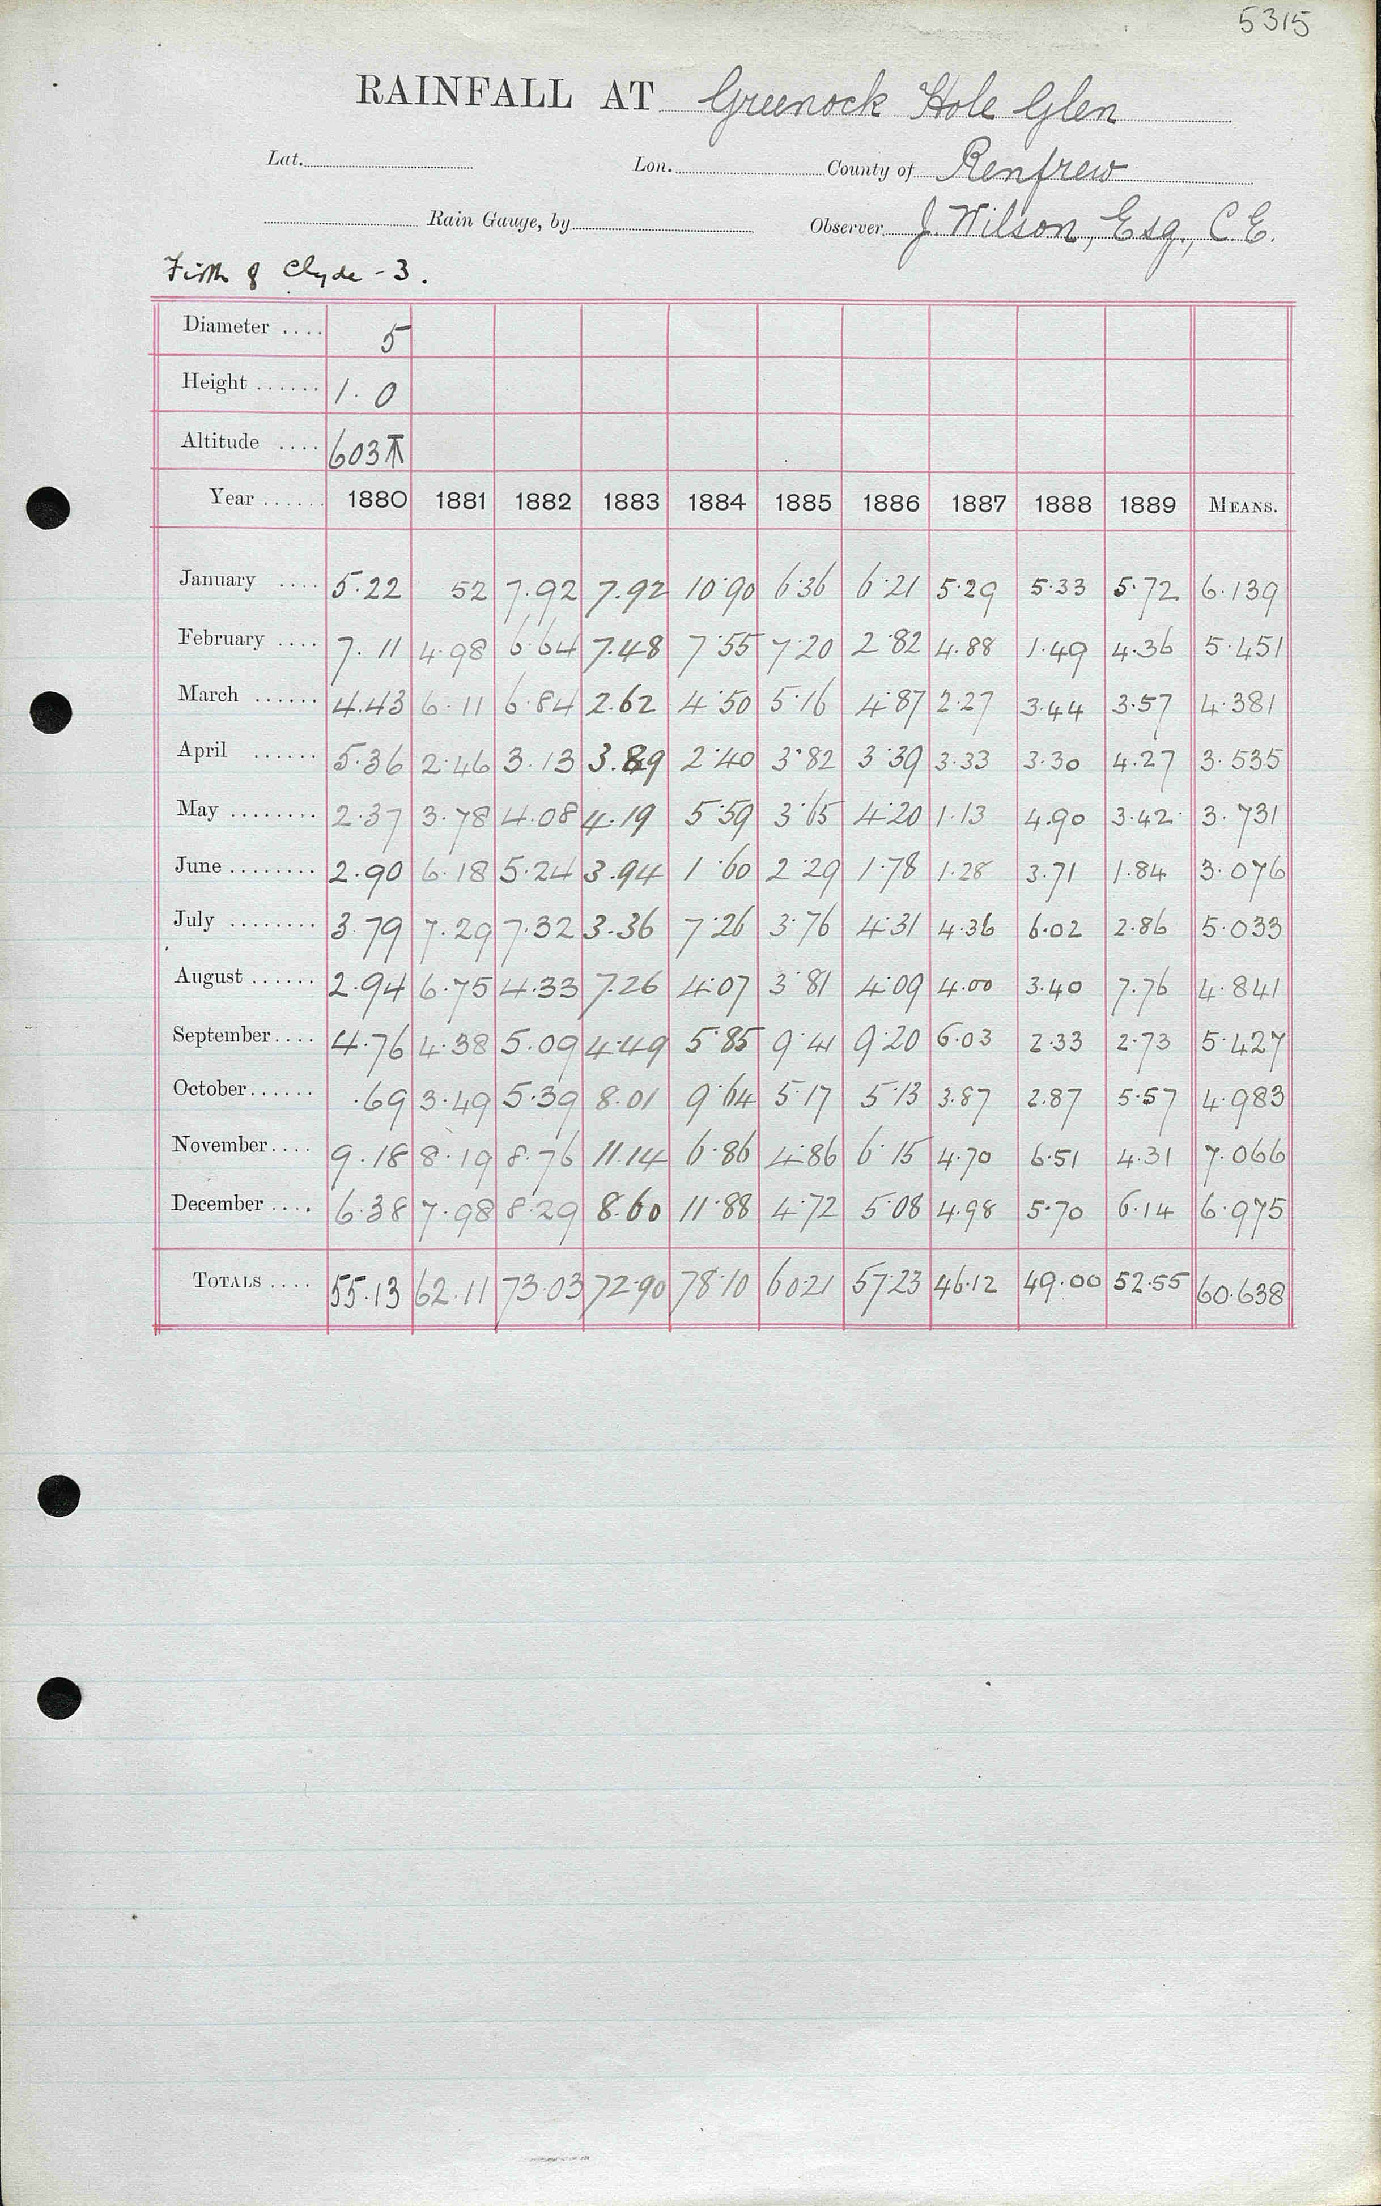 5315
RAINFALL AT Greenock Hole Glen
Lat. Lon. County of Renfrew
Rain Gauge, by Observer J. Wilson, Esq., C.E.
Firth of Clyde - 3.
Diameter .... 5
Height ...... 1.0
Altitude .... 603
Year ...... 1880 1881 1882 1883 1884 1885 1886 1887 1888 1889 MEANS.
January .... 5.22 52 7.92 7.92 10.90 6.36 6.21 5.29 5.33 5.72 6.139
February .... 7.11 4.98 6.64 7.48 7.55 7.20 2.82 4.88 1.49 4.36 5.451
March ...... 4.43 6.11 6.84 2.62 4.50 5.16 4.87 2.27 3.44 3.57 4.381
April ...... 5.36 2.46 3.13 3.89 2.40 3.82 3.39 3.33 3.30 4.27 3.535
May ........ 2.37 3.78 4.08 4.19 5.59 3.65 4.20 1.13 4.90 3.42 3.731
June ........ 2.90 6.18 5.24 3.94 1.60 2.29 1.78 1.28 3.71 1.84 3.076
July ........ 3.79 7.29 7.32 3.36 7.26 3.76 4.31 4.36 6.02 2.86 5.033
August ...... 2.94 6.75 4.33 7.26 4.07 3.81 4.09 4.00 3.40 7.76 4.841
September .... 4.76 4.38 5.09 4.49 5.85 9.41 9.20 6.03 2.33 2.73 5.427
October ...... .69 3.49 5.39 8.01 9.64 5.17 5.13 3.87 2.87 5.57 4.983
November .... 9.18 8.19 8.76 11.14 6.86 4.86 6.15 4.70 6.51 4.31 7.066
December .... 6.38 7.98 8.29 8.60 11.88 4.72 5.08 4.98 5.70 6.14 6.975
TOTALS .... 55.13 62.11 73.03 72.90 78.10 60.21 57.23 46.12 49.00 52.55 60.638